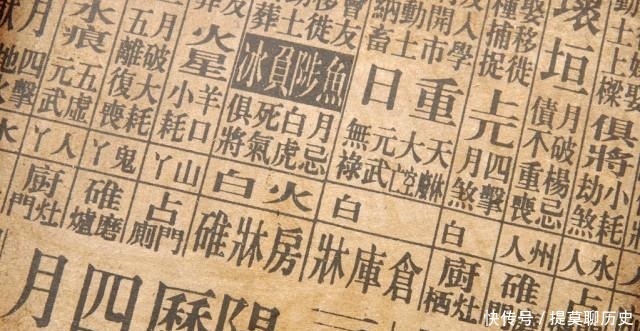 俱將
小耗
劫煞
水人
壞垣
月破楊忌
債不重喪
州人
碓
娶移徙
種捕捉
上元
四擊
月煞
白
厨灶栖
人學
開市
動土
納畜
重日
天
大空亡
元武
無祿
白
倉庫牀
友
移徙
葬土
魚陟負冰
月忌
白虎
死氣
俱將
火白
房牀碓
火星
羊口
小耗
月破大耗
五離復喪
山丫
占門廁
水痕
五虛
元武
鬼丫
碓磨爐
月
四擊
地火
人丫
厨灶門
曆四月
快传号／提莫聊历史